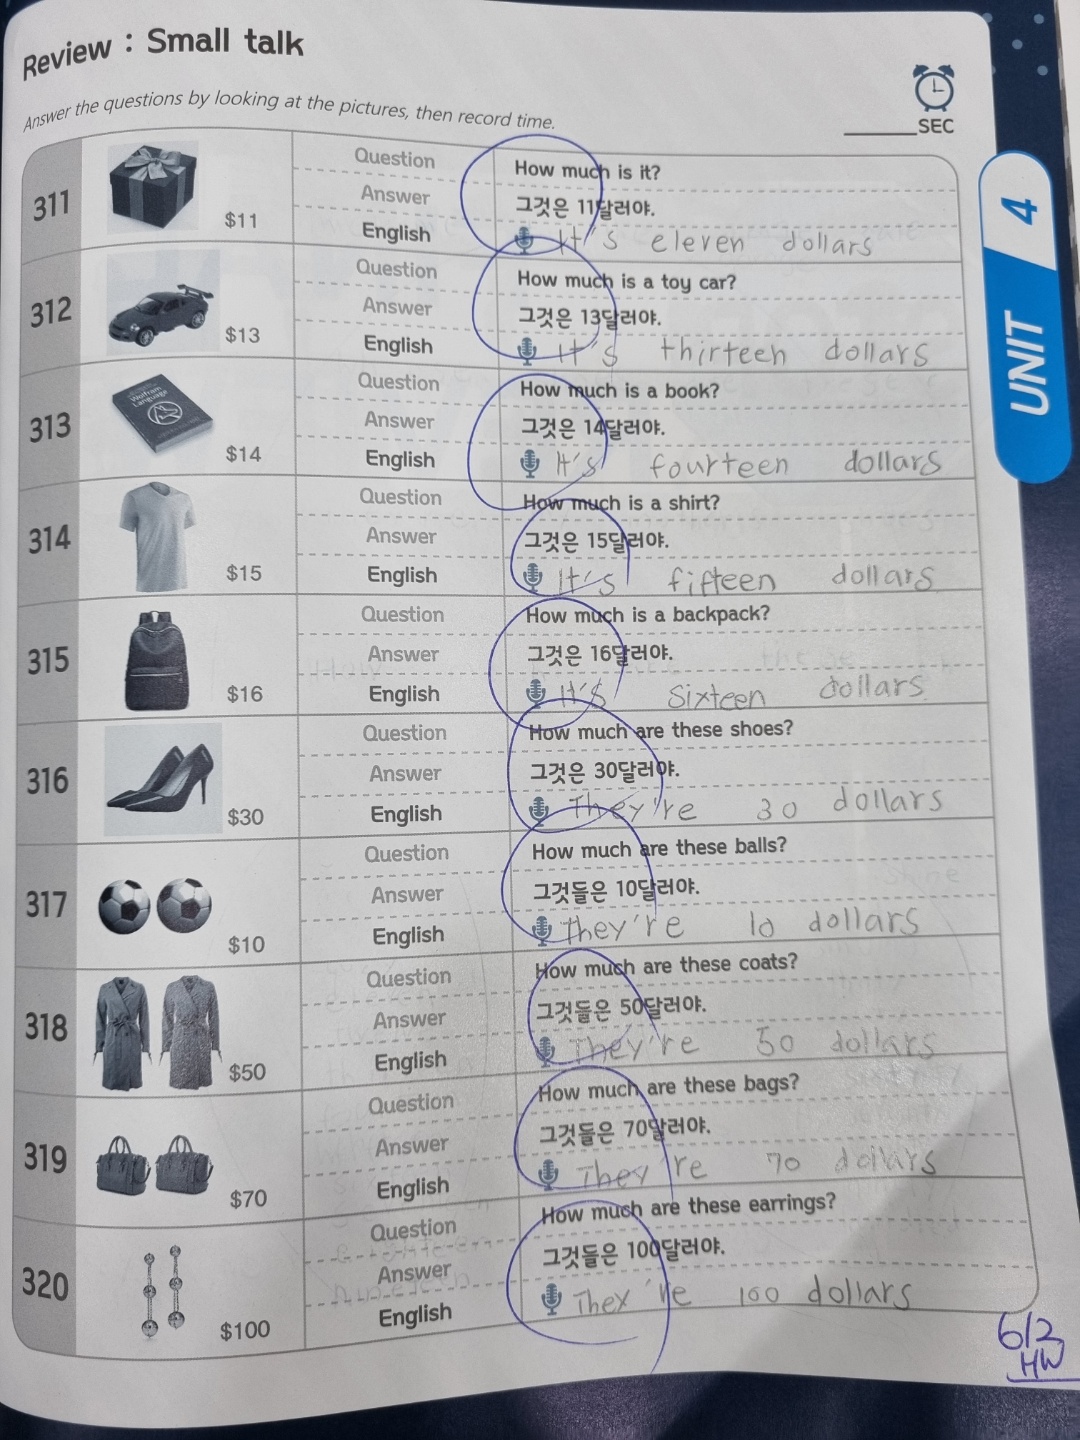 Review : Small talk
Answer the questions by looking at the pictures, then record time.
SEC
UNIT 4
311
$11
Question
How much is it?
Answer
그것은 11달러야.
English
It's eleven dollars
312
$13
Question
How much is a toy car?
Answer
그것은 13달러야.
English
It's thirteen dollars
313
Wolfram
Language
$14
Question
How much is a book?
Answer
그것은 14달러야.
English
It's fourteen dollars
314
$15
Question
How much is a shirt?
Answer
그것은 15달러야.
English
It's fifteen dollars
315
$16
Question
How much is a backpack?
Answer
그것은 16달러야.
English
It's sixteen dollars
316
$30
Question
How much are these shoes?
Answer
그것은 30달러야.
English
They're 30 dollars
317
$10
Question
How much are these balls?
Answer
그것들은 10달러야.
English
They're 10 dollars
318
$50
Question
How much are these coats?
Answer
그것들은 50달러야.
English
They're 50 dollars
319
$70
Question
How much are these bags?
Answer
그것들은 70달러야.
English
They're 70 dollars
320
$100
Question
How much are these earrings?
Answer
그것들은 100달러야.
English
They're 100 dollars
HW